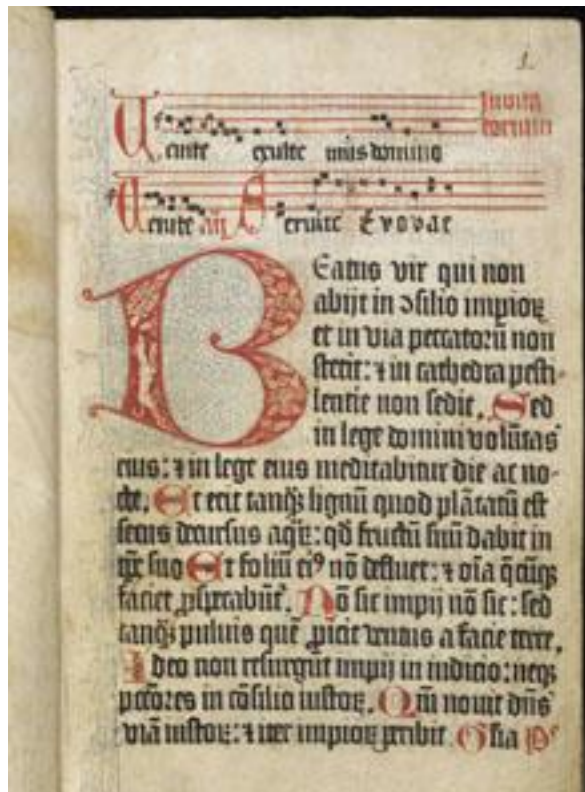 1
Inuita
torium
Uenite exulte mus domino
Uenite añ Seruite Euouae
Beatus vir qui non
abijt in ɔsilio impioꝝ
et in via peccatoꝝ non
stetit: ⁊ in cathedra pesti-
lentie non sedit. Sed
in lege domini volūtas
eius: ⁊ in lege eius meditabitur die ac no-
cte. Et erit tanqꝫ lignū quod plātatū est
secus decursus aqꝝ: qđ fructū suū dabit in
tꝑe suo Et foliū eiꝰ nō defluet: ⁊ oīa q̄cūqꝫ
faciet ꝓsꝑabūt. Nō sic impij nō sic: sed
tanqꝫ puluis quē ꝓicit ventus a facie terre.
Ideo non resurgūt impij in iudicio: neqꝫ
pctōres in cōsilio iustoꝝ. Qm̄ nouit dn̄s
viā iustoꝝ: ⁊ iter impioꝝ peribit. Gl̓ia